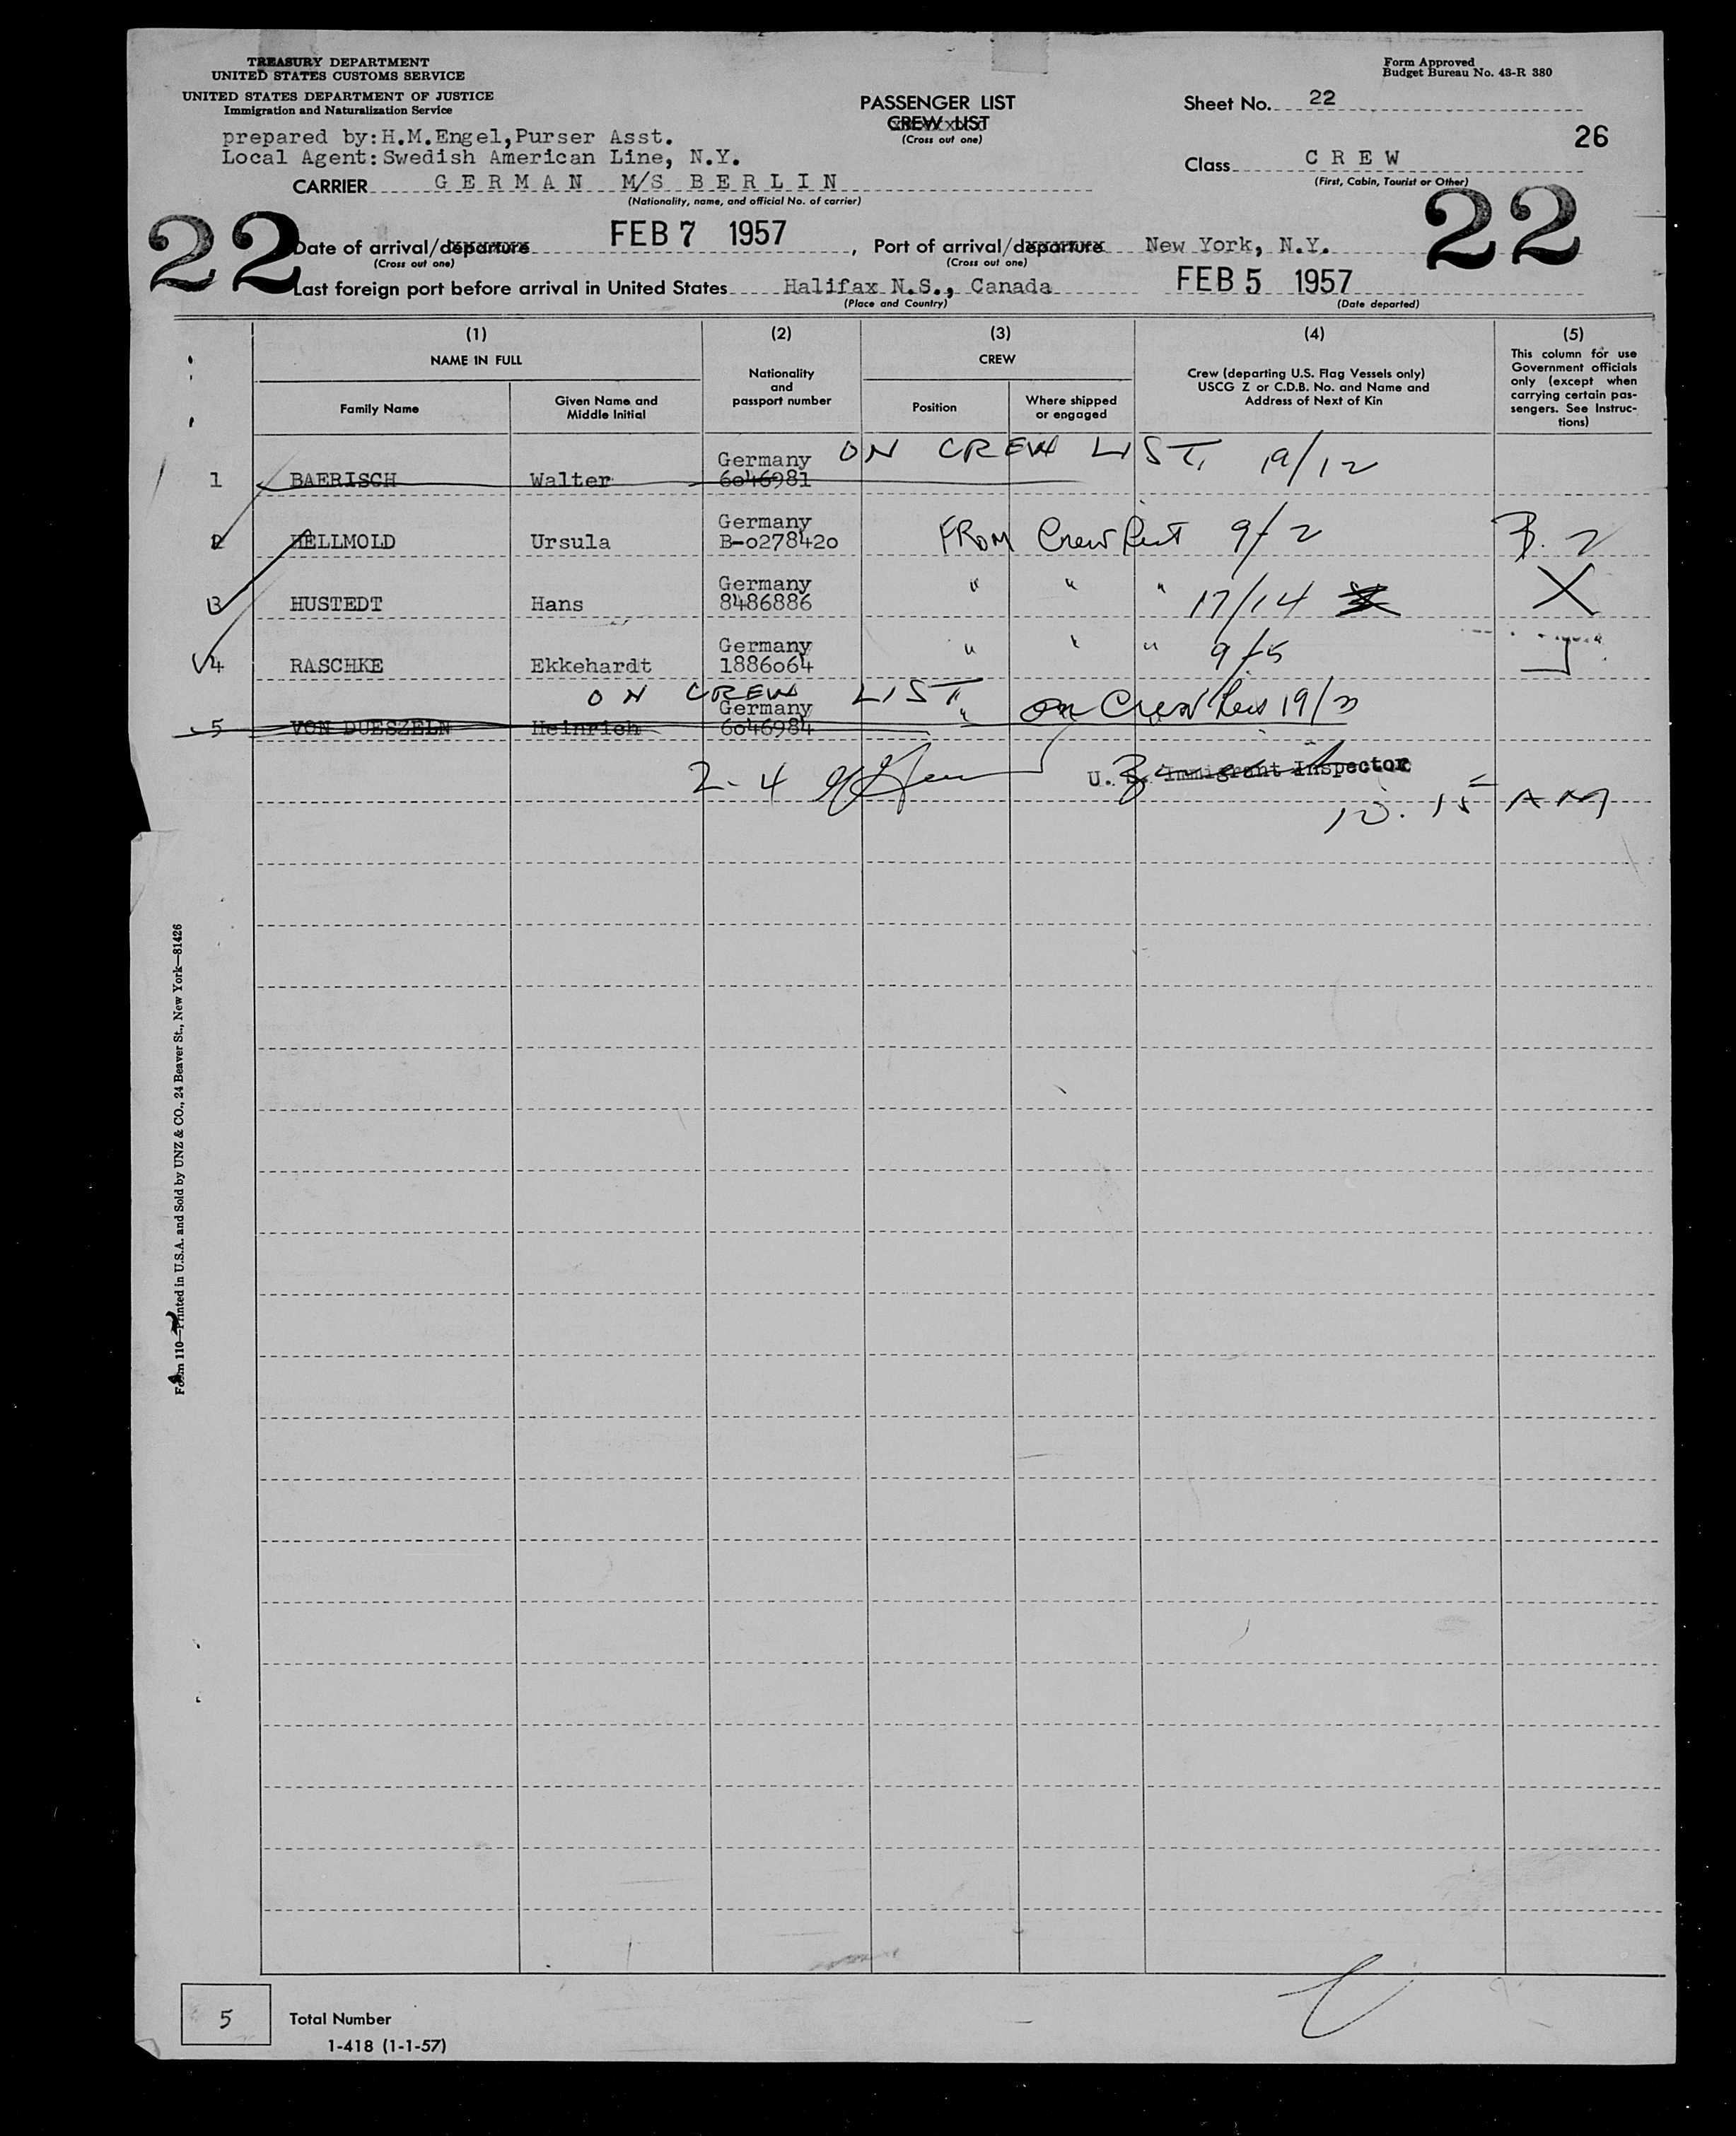 TREASURY DEPARTMENT
UNITED STATES CUSTOMS SERVICE
UNITED STATES DEPARTMENT OF JUSTICE
Immigration and Naturalization Service
Form Approved
Budget Bureau No. 43-R 380
PASSENGER LIST
CREW LIST
(Cross out one)
Sheet No. 22
26
prepared by:H.M.Engel,Purser Asst.
Local Agent:Swedish American Line, N.Y.
Class CREW
(First, Cabin, Tourist or Other)
CARRIER GERMAN M/S BERLIN
(Nationality, name, and official No. of carrier)
22
22
Date of arrival/departure FEB 7 1957, Port of arrival/departure New York, N.Y.
(Cross out one) (Cross out one)
Last foreign port before arrival in United States Halifax N.S., Canada FEB 5 1957
(Place and Country) (Date departed)
(1) (2) (3) (4) (5)
NAME IN FULL
Family Name
Given Name and Middle Initial
Nationality and passport number
CREW
Position
Where shipped or engaged
Crew (departing U.S. Flag Vessels only)
USCG Z or C.D.B. No. and Name and
Address of Next of Kin
This column for use
Government officials
only (except when
carrying certain pas-
sengers. See Instruc-
tions)
Germany ON CREW LIST. 19/12
1 BAERISCH Walter 6o46981
Germany
2 HELLMOLD Ursula B-o27842o FROM Crew List 9/2 B. 2
Germany
3 HUSTEDT Hans 8486886 " " " 17/14 X
Germany
4 RASCHKE Ekkehardt 1886o64 " " " 9/5
ON CREW LIST
Germany
5 VON DUESZELN Heinrich 6o46984 " on Crew List 19/
2-4
U. S. Immigrant Inspector
10.15 AM
Form 110—Printed in U.S.A. and Sold by UNZ & CO., 24 Beaver St., New York—81426
5 Total Number
1-418 (1-1-57)